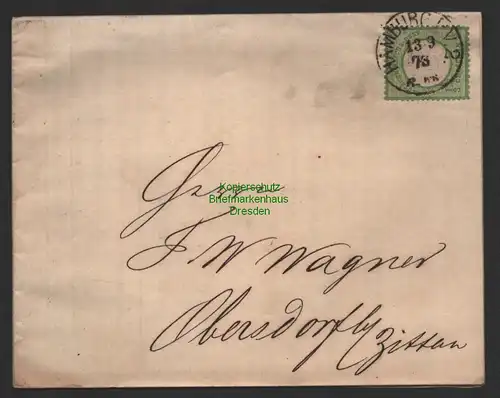 HAMBURG I.V.2
13 9
73
Kopierschutz
Briefmarkenhaus
Dresden
Herrn
J W Wagner
Obersdorf by
Zittau